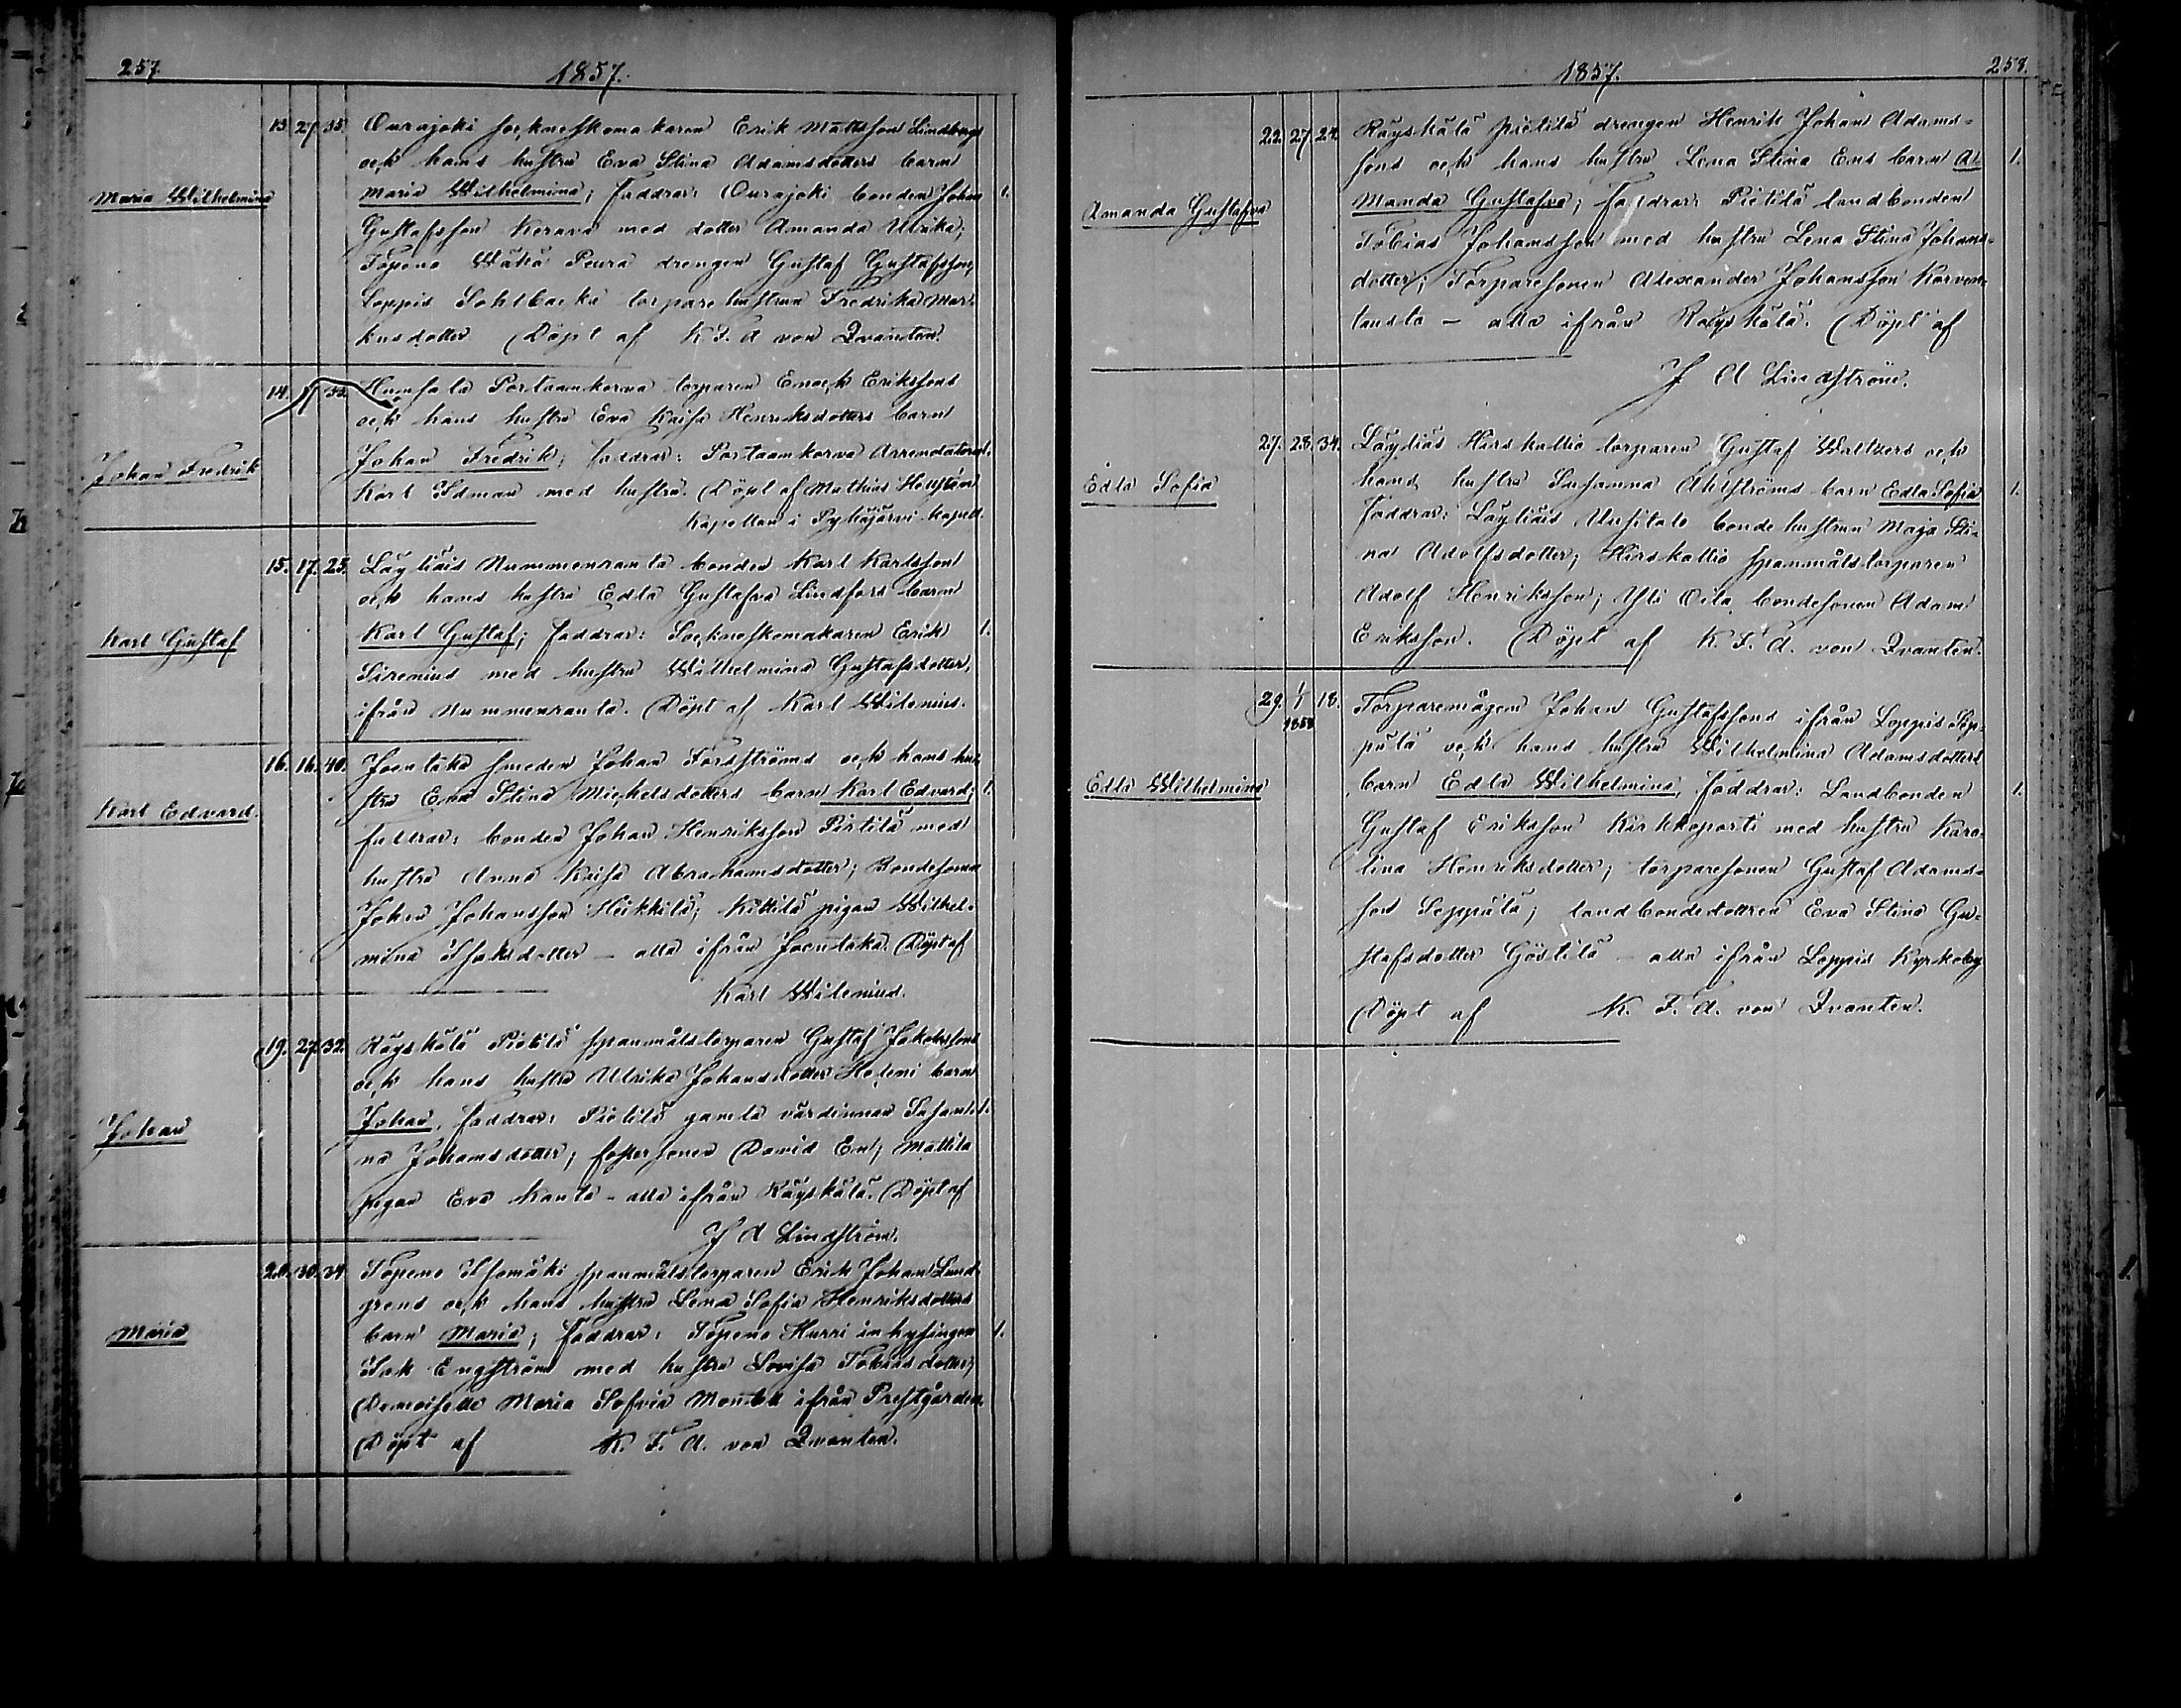 257.
1857.
13. 27. 35. Ourajoki sockneskomakaren Erik Mattsson Lindbergs
och hans hustru Eva Stina Adamsdotters barn
Maria Wilhelmina
Maria Wilhelmina; faddrar: Ourajoki bonden Johan 1.
Gustafsson Kerava med dotter Amanda Ulrika;
Topeno Wähä Peura drengen Gustaf Gustafsson,
Loppis Sohlbacka torparehustrun Fredrika Mar-
kusdotter Döpt af K. F. A von Qvanten.
14. 17 33. Humsala Portaankorva torparen Enock Erikssons
och hans hustru Eva Kaisa Henriksdotters barn
Johan Fredrik
Johan Fredrik; faddrar: Portaankorva Arrendatorn 1.
Karl Idman med hustru. Döpt af Mathias Hellstén
Kapellan i Pyhäjärvi kapell.
15. 17. 25. Läyliäis Nummenranta bonden Karl Karlsson
och hans hustru Edla Gustafva Lindfors barn
Karl Gustaf
Karl Gustaf; faddrar: Sockneskomakaren Erik 1.
Sirenius med hustru Wilhelmina Gustafsdotter,
ifrån Nummenranta. Döpt af Karl Wilenius.
16. 16. 40. Joentaka smeden Johan Forsströms och hans hu-
stru Eva Stina Michelsdotters barn Karl Edvard; 1.
Karl Edvard.
faddrar: bonden Johan Henriksson Pirtilä med
hustru Anna Kaisa Abrahamsdotter; Bondesonen
Johan Johansson Heikkilä; Kittilä pigan Wilhel-
mina Isaksdotter – alla ifrån Joentaka. Döpt af
Karl Wilenius.
19. 27. 32. Räyskälä Pietilä spanmålstorparen Gustaf Jakobssons
och hans hustru Ulrika Johansdotter Hakeni barn
Johan
Johan, faddrar: Pietilä gamla värdinnan Susan- 1.
na Johansdotter; fostersonen David En; Mattila
pigan Eva Kanta – alla ifrån Räyskälä. Döpt af
J A Lindström.
20. 30. 34 Topeno Isomäki spanmålstorparen Erik Johan Lund-
grens och hans hustru Lena Sofia Henriksdotters
Maria
barn Maria; faddrar: Topeno Hurri inhysingen 1.
Isak Engström med hustru Lovisa Tobiasdotter;
Demoiselle Maria Sofia Montell ifrån Prestgården.
Döpt af K. F. A. von Qvanten.
1857.
258.
22. 27. 24. Räyskälä Pietilä drengen Henrik Johan Adams-
sons och hans hustru Lena Stina Ens barn A- 1.
Amanda Gustafva
Manda Gustafva; faddrar: Pietilä landbonden
Tobias Johansson med hustru Lena Stina Johans-
dotter; Torparesonen Alexander Johansson Korven-
tausta – alla ifrån Räyskälä. Döpt af
J A Lindström.
27. 28. 34. Läyliäs Hirskallio torparen Gustaf Wallters och
Edla Sofia
hans hustru Susanna Ahlströms barn Edla Sofia 1.
faddrar: Läyliäis Uusitalo bondehustrun Maja Sti-
na Adolfsdotter; Hirskallio spanmålstorparen
Adolf Henriksson; Yli Oila bondesonen Adam
Eriksson. Döpt af K. F. A. von Qvanten.
29. 1/1 1858 18. Torparemågen Johan Gustafssons ifrån Loppis Sep-
pälä och hans hustru Wilhelmina Adamsdotters
Edla Wilhelmina
barn Edla Wilhelmina, faddrar: Landbonden 1.
Gustaf Eriksson Kirkkoporti med hustru Karo-
lina Henriksdotter; torparesonen Gustaf Adams-
son Seppälä; landbondedottren Eva Stina Gu-
stafsdotter Göstilä – alla ifrån Loppis Kyrkoby
Döpt af K. F. A. von Qvanten.